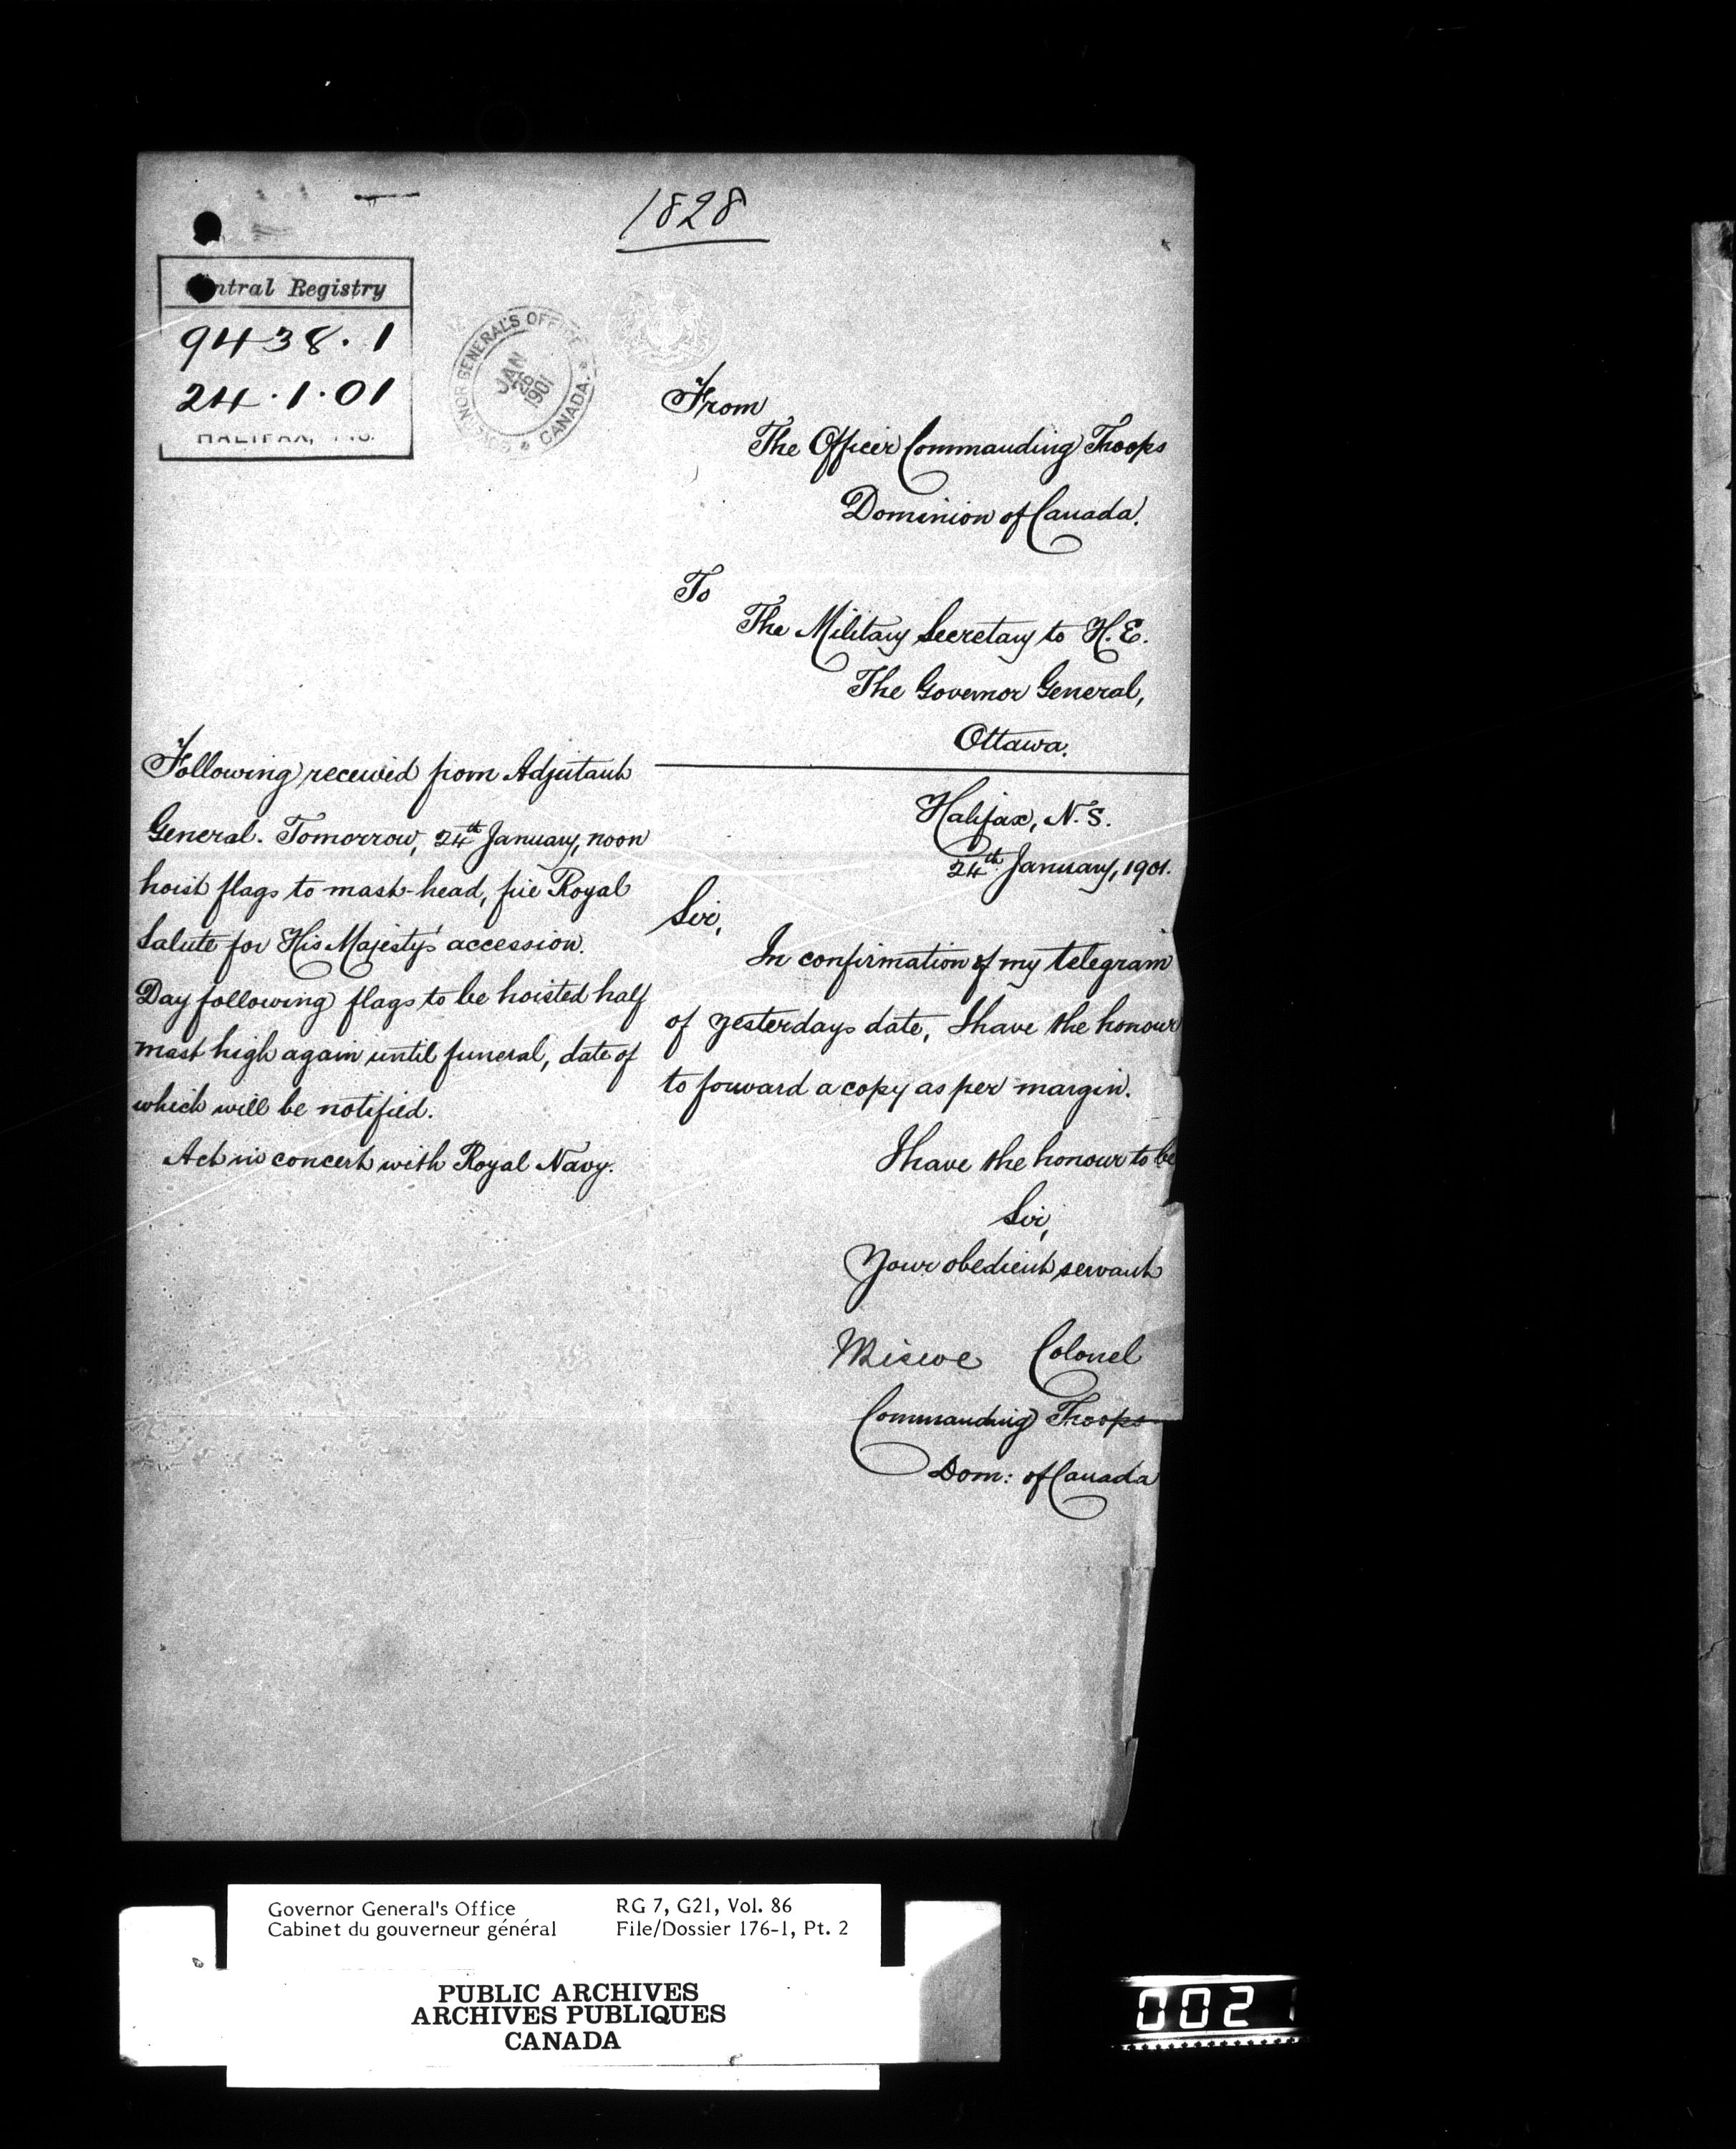 1828
Central Registry
9438.1
24.1.01
HALIFAX, N.S.
GOVERNOR GENERAL'S OFFICE
JAN
1901
CANADA
From
The Officer Commanding Troops
Dominion of Canada.
To
The Military Secretary to H.E.
The Governor General,
Ottawa.
Halifax, N.S.
24th January, 1901.
Sir,
In confirmation of my telegram
of yesterdays date, I have the honour
to forward a copy as per margin.
I have the honour to be
Sir,
Your obedient servant
Colonel
Commanding Troops
Dom: of Canada
Following received from Adjutant
General. Tomorrow, 24th January, noon
hoist flags to mast-head, fire Royal
Salute for His Majesty's accession.
Day following flags to be hoisted half
mast high again until funeral, date of
which will be notified.
Act in concert with Royal Navy.
Governor General's Office
Cabinet du gouverneur général
RG 7, G21, Vol. 86
File/Dossier 176-1, Pt. 2
PUBLIC ARCHIVES
ARCHIVES PUBLIQUES
CANADA
0021